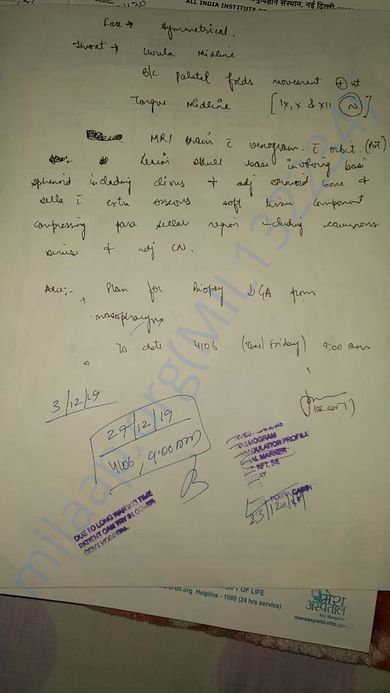 ALL INDIA INSTITUTE OF
संस्थान, नई दिल्ली
Face → Symmetrical.
Throat → Uvula Midline
B/L Palatal folds movement ⊕nt
Tongue Midline [IX, X & XII (N)]
MRI Brain c̄ venogram. c̄ orbit.
Lesion skull base involving basi
sphenoid including clivus + adj ethmoid bone &
sella c̄ extra osseous soft tissue component
compressing para sellar region including cavernous
sinus & adj CN.
Adv:- Plan for Biopsy GA from
nasopharynx
To date 4106 (Tues/Friday) 9:00 am
3/12/19
(SR ENT)
29/12/19
4106, 9:00 am
COAGULATION PROFILE
VIRAL MARKER
DUE TO LONG WAITING TIME
PATIENT CAN TRY IN OTHER
GOVT HOSPITAL
milaap.org(MIL132234)
GIFT OF LIFE
Helpline - 1060 (24 hrs service)
मेरा
अस्पताल
My Hospital